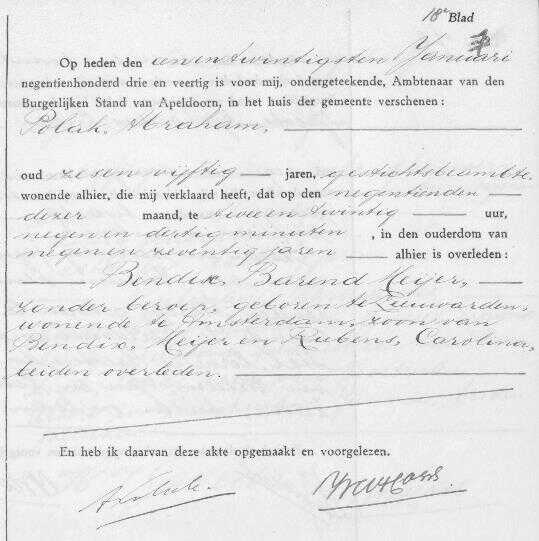 18e Blad
Op heden den eenentwintigsten Januari
negentienhonderd drie en veertig is voor mij, ondergeteekende, Ambtenaar van den
Burgerlijken Stand van Apeldoorn, in het huis der gemeente verschenen:
Polak, Abraham,
oud zesenvijftig jaren, gestichtsbeambte
wonende alhier, die mij verklaard heeft, dat op den negentienden
dezer maand, te tweeentwintig uur,
negenendertig minuten, in den ouderdom van
negenenzeventig jaren alhier is overleden:
Bendix, Barend Meijer,
zonder beroep, geboren te Leeuwarden,
wonende te Amsterdam, zoon van
Bendix, Meijer en Rubens, Carolina,
beiden overleden.
En heb ik daarvan deze akte opgemaakt en voorgelezen.